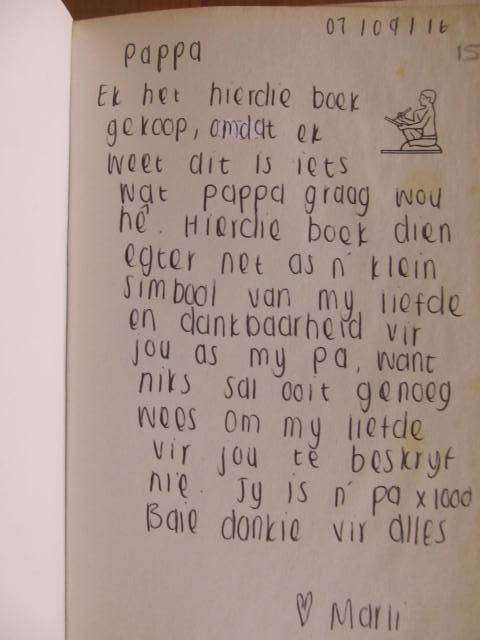 07/09/16
15
pappa
Ek het hierdie boek
gekoop, omdat ek
weet dit is iets
wat pappa graag wou
hê. Hierdie boek dien
egter net as n' klein
simbool van my liefde
en dankbaarheid vir
jou as my pa, want
niks sal ooit genoeg
wees om my liefde
vir jou te beskryf
nie. Jy is n' pa x1000
Baie dankie vir alles
♡ Marli